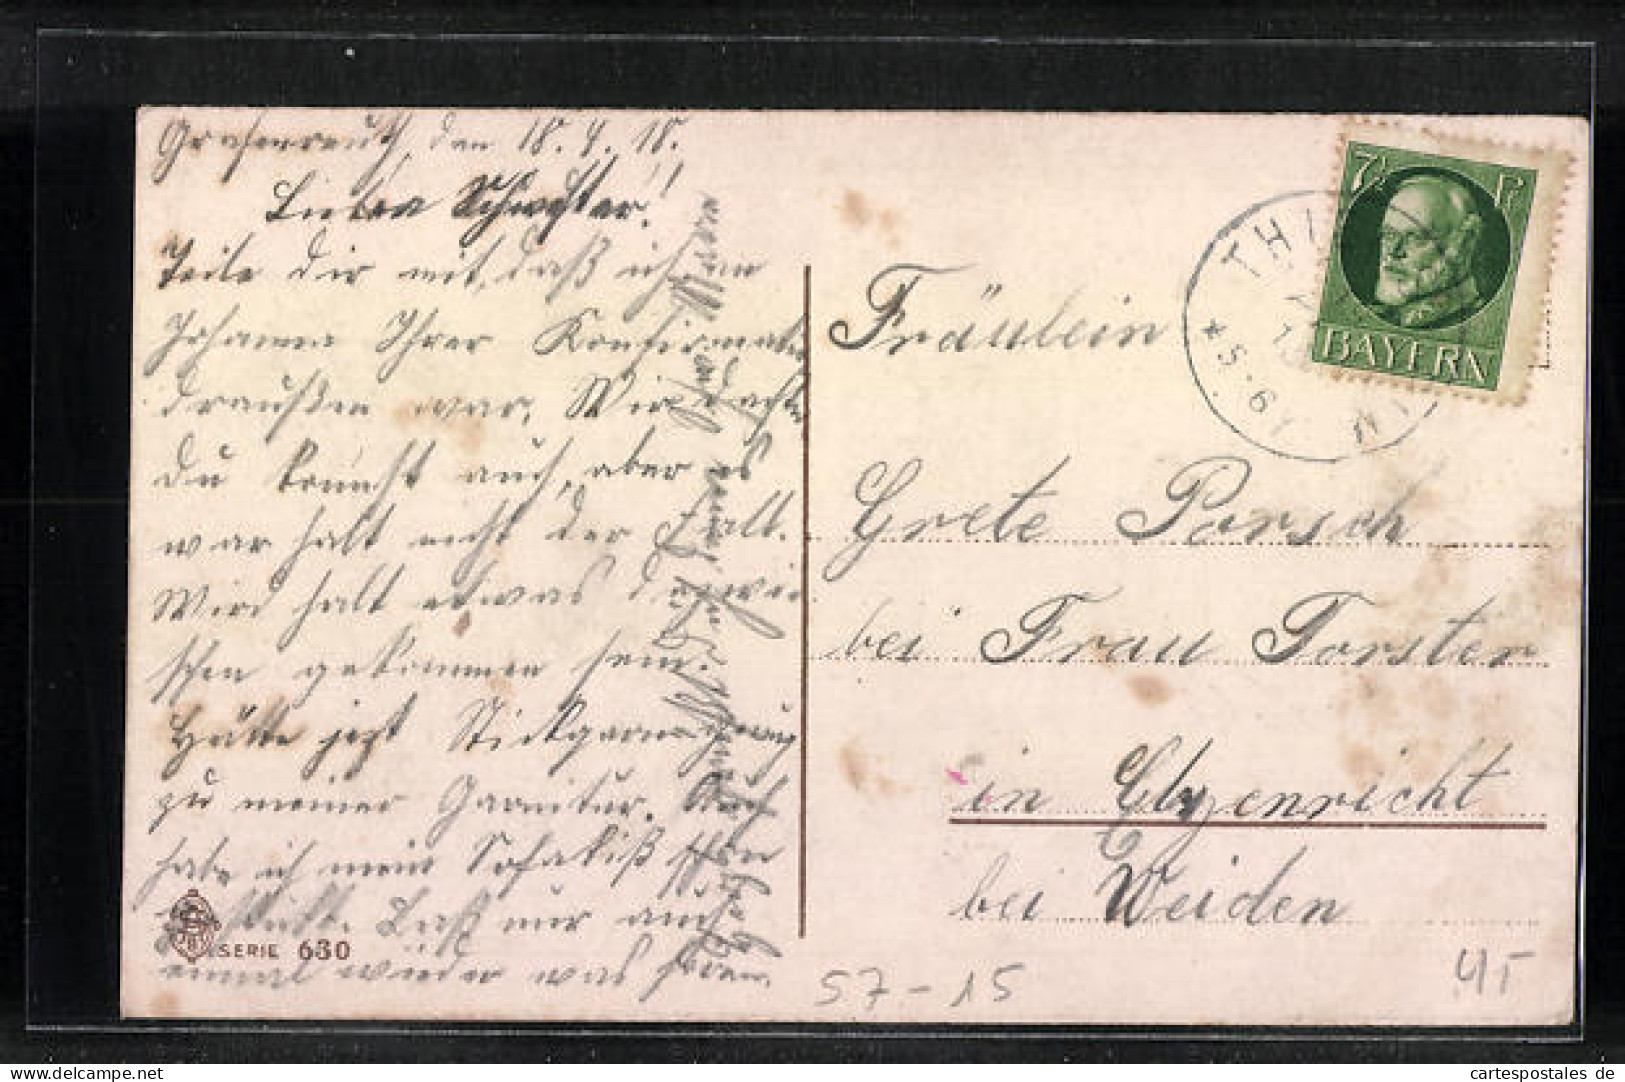 Grafenreuth, den 18. 4. 18.
Lieben Schwester!
Teile dir mit, daß ich an
Johanna Ihrer Konfirmation
draußen war. Wir dachten
du kommst auch, aber es
war halt nicht der Fall.
Wird halt etwas dazwi
schen gekommen sein.
Hätte jetzt Stickgarn genug
zu meiner Garnitur. Auch
habe ich mein Sofakiß schon
gestickt. Laß nur auch
einmal wieder was hören.
SERIE 630
Fräulein
Grete Porsch
bei Frau Forster
in Etzenricht
bei Weiden
7½ P
BAYERN
THI
5-6
57-15
cartespostales.de